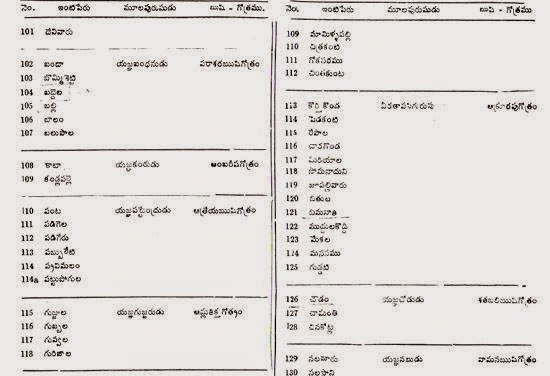 నెం. ఇంటిపేరు మూలపురుషుడు ఋషి - గోత్రము.
101 జీనివారు
102 బండా యజ్ఞబంధనుడు పరాశరఋషిగోత్రం
103 బొమ్మిశెట్టి
104 బద్దెల
105 బల్లి
106 బాలం
107 బలుపాల
108 కాటా యజ్ఞకంఠుడు అంబరీషగోత్రం
109 కండ్లపల్లె
110 పంట యజ్ఞపస్టేంద్రుడు ఆత్రేయఋషిగోత్రం
111 పడిగెల
112 పడిగేరు
113 పబ్బులేటి
114
114a పట్టుపోగుల
115 గుజ్జల యజ్ఞగుజ్జరుడు
116 గుబ్బల
117 గువ్వల
118 గురిజాల
నెం. ఇంటిపేరు మూలపురుషుడు ఋషి - గోత్రము.
109 మామిళ్ళపల్లి
110 చిత్రకంటి
111 గోకసరము
112 చింతకుంట
113 కొర్రి కొండ వీరతాపసిగురువు అక్రూరపుగోత్రం
114 పెడకంటి
115 రేపాల
116 చానగొండ
117 పిరియాల
118 సోమనాదుని
119 జూపల్లివారు
120 ఏతుల
121
122 ముద్దులకొద్ది
123 మేకల
124 మనసము
125 గుడ్డటి
126 చౌడం యజ్ఞచోడుడు శతబలిఋషిగోత్రం
127 చామంతి
128 చినకొట్ల
129 నలవారు యజ్ఞనలుడు వామనఋషిగోత్రం
130 నలసాని